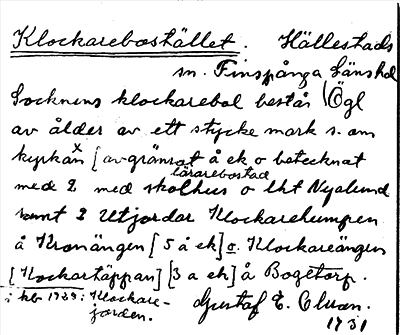 Klockarebostället. Hällestads
sn. Finspånga länshd
Socknens klockarebol består (Ögl
av ålder av ett stycke mark s. om
kyrkan x [avgränsat å ek o betecknat
lärarebostad
med 2 med skolhus o lht Nyalund
samt 2 utjordar Klockarehumpen
å Kronängen [5 å ek] o. Klockareängen
[Klockartäppan] [3 a ek] å Bogetorp.
i kbr 1939: Klockare-
jorden.
Gustaf E. Olson.
1931